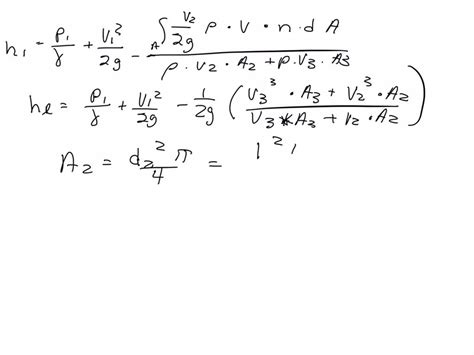 h₁ = P₁/γ + V₁²/2g - ∫_A V₂/2g ρ · V · n · d A / ρ · V₂ · A₂ + ρ · V₃ · A₃
hℓ = P₁/γ + V₁²/2g - 1/2g ( V₃³ · A₃ + V₂³ · A₂ / V₃ * A₃ + V₂ · A₂ )
A₂ = d₂² π / 4 = 1²